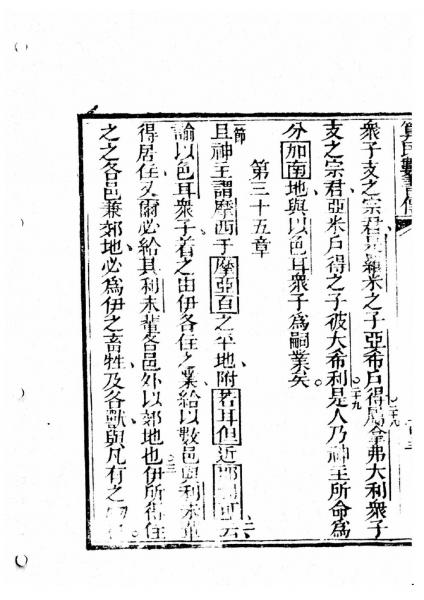 衆子支之宗君是羅米之子亞希戶得屬拿弗大利衆子
支之宗君亞米戶得之子彼大希利是人乃神主所命爲
二十九
分加南地與以色耳衆子爲嗣業矣
第三十五章
一節
且神主謂摩西于摩亞百之平地附若耳但近云
二
諭以色耳衆子着之由伊各住之業給以數邑與利未輩
得居住又爾必給其利未輩各邑外以郊地也伊所得住
三
之之各邑兼郊地必爲伊之畜牲及各獸與凡有之